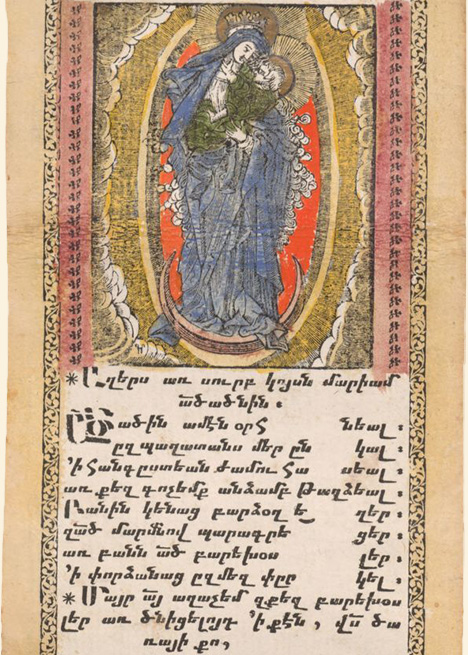 * Աղերս առ սուրբ կոյսն մարիամ
ած՟ածնին :
Ծածին ամէն օրհնեալ :
ըղպաղատանս մեր ընկալ :
՚ի հանգըստեան ժամու հասեալ :
առ քեզ գոչեմք անձամբ թաղձեալ :
Բանին կենաց բարձօղ եղեր :
զած՟ մարմնով պարագրեցեր :
առ բանն ած՟ բարեխօս լեր :
՚ի փորձանաց ըզմեզ փըրկել :
* Մայր այ՟ աղաչեմ զքեզ բարեխօս
լեր առ ծնիցելոյդ ՚ի քէն , վս՟ ծա
ռայի քո ,